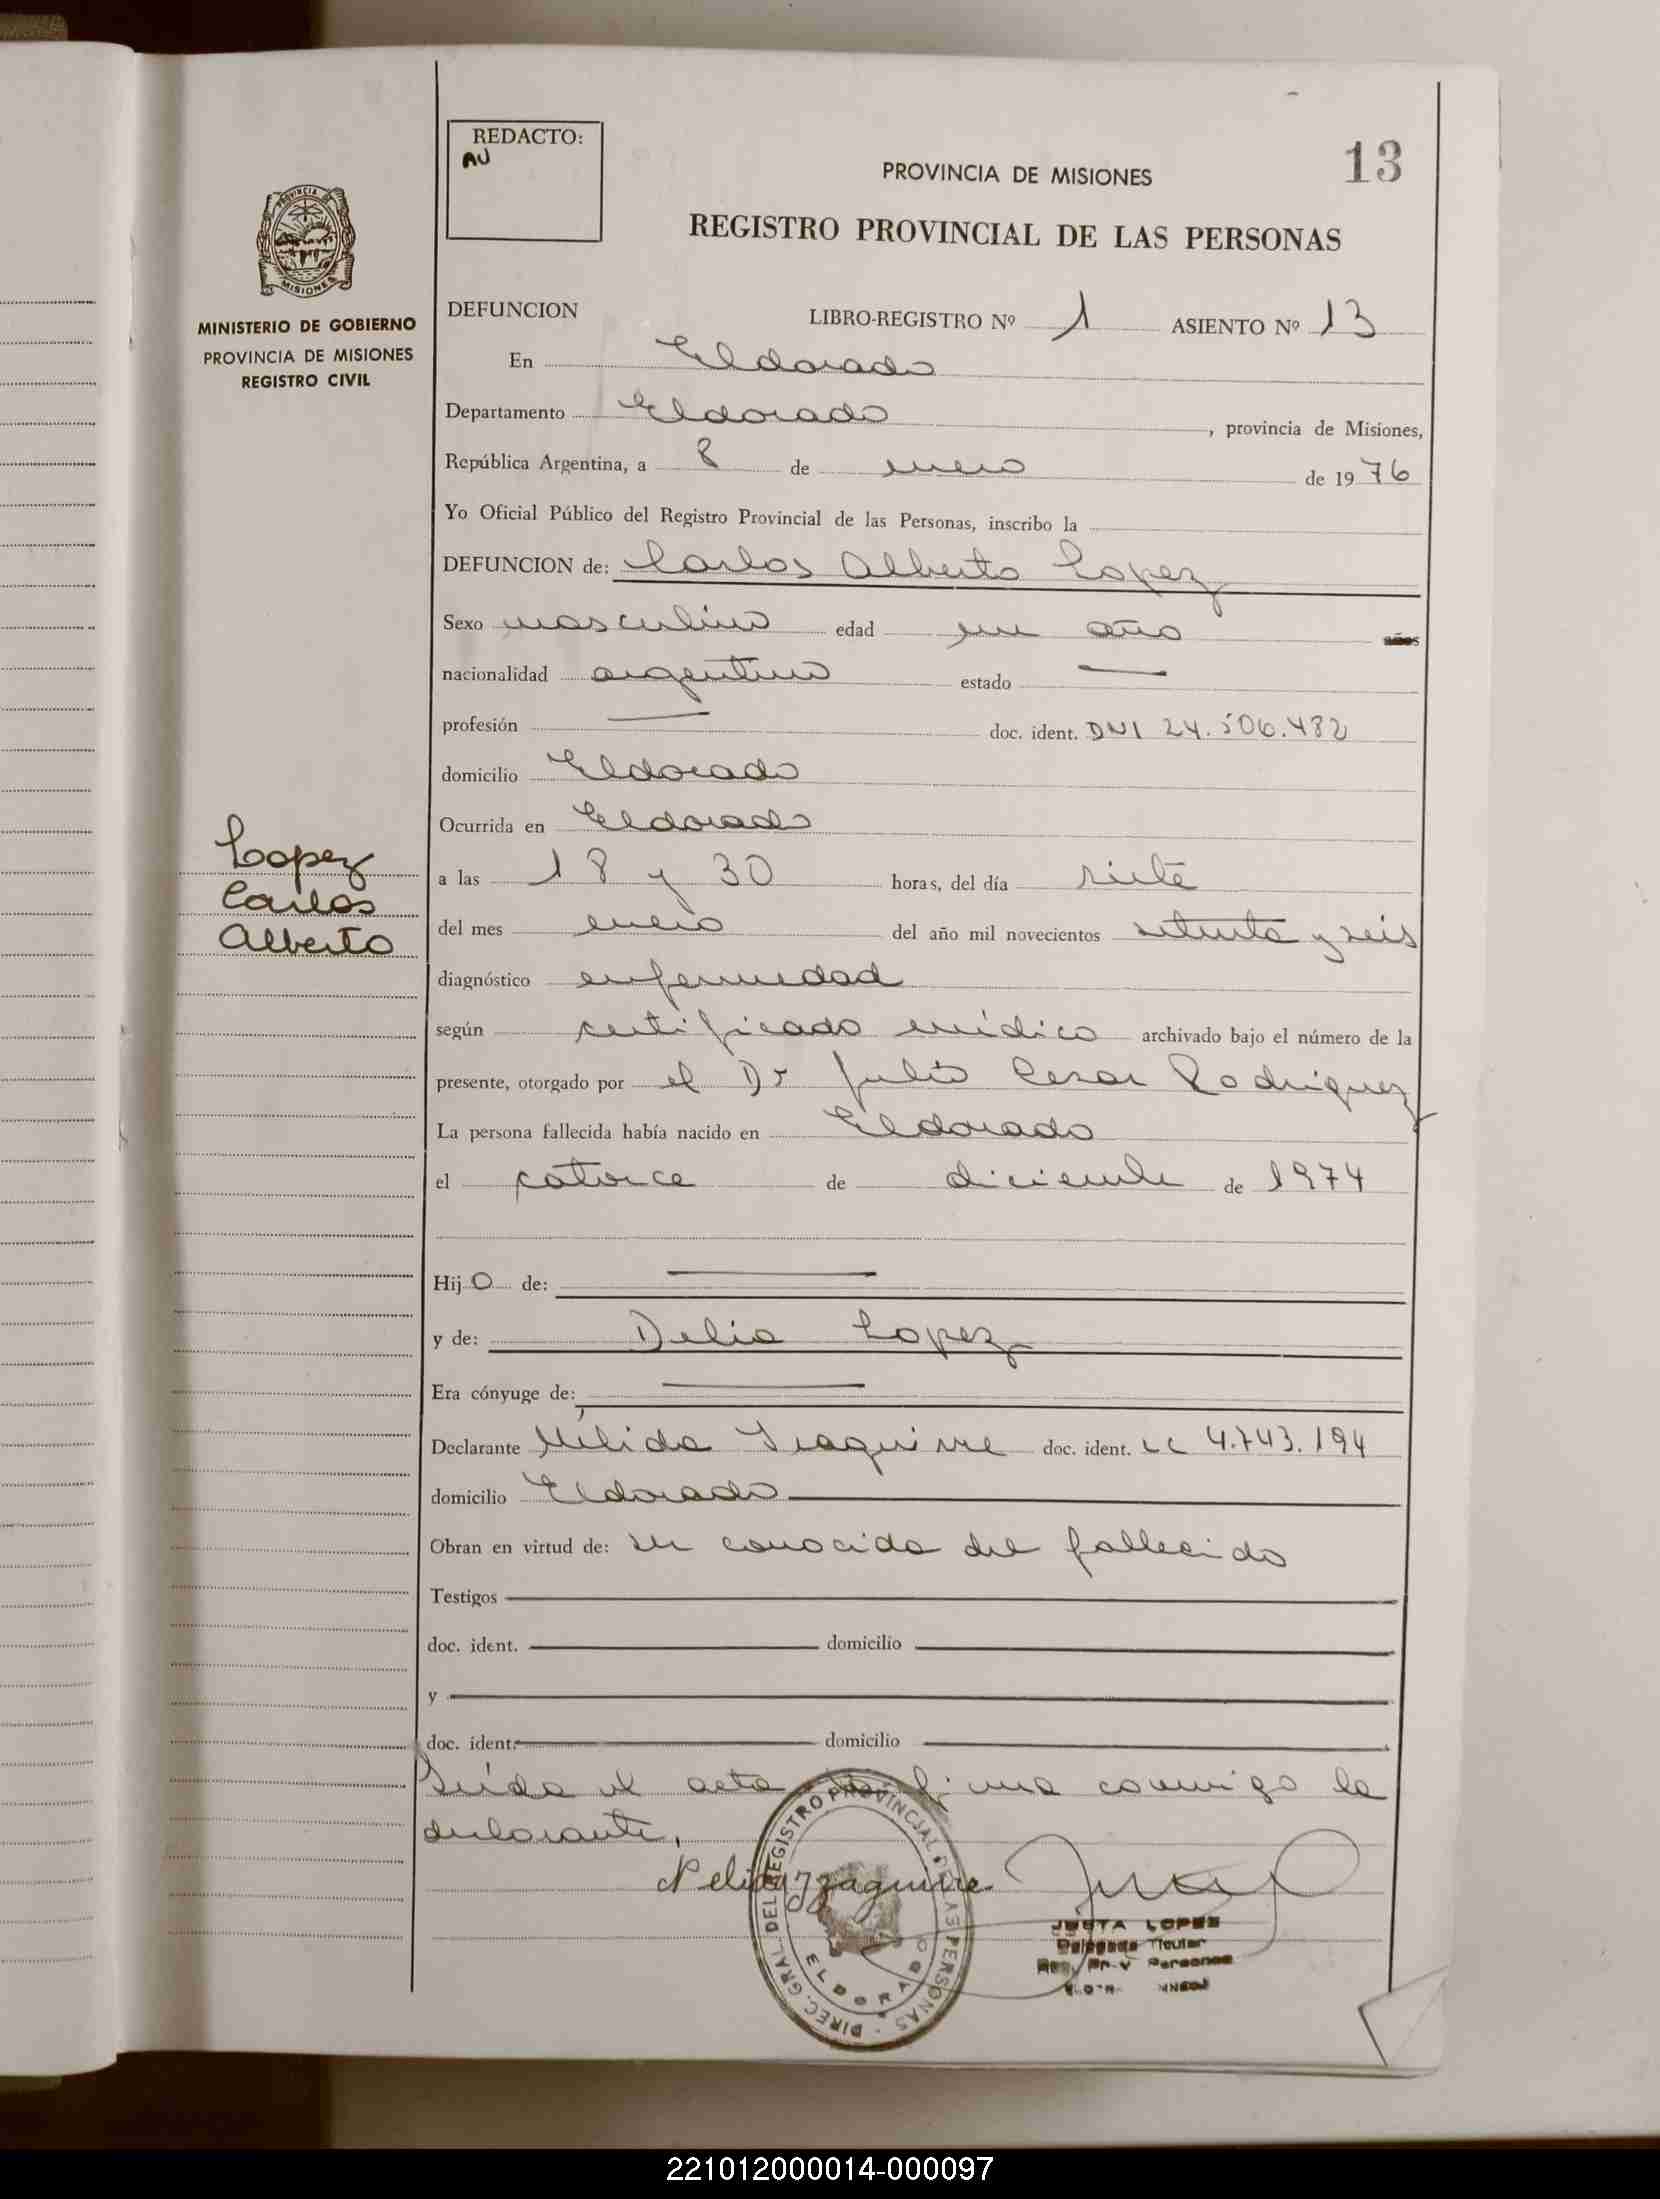 REDACTO:
AU
PROVINCIA DE MISIONES
13
REGISTRO PROVINCIAL DE LAS PERSONAS
PROVINCIA
MISIONES
MINISTERIO DE GOBIERNO
PROVINCIA DE MISIONES
REGISTRO CIVIL
DEFUNCION LIBRO-REGISTRO Nº 1 ASIENTO Nº 13
En Eldorado
Departamento Eldorado, provincia de Misiones,
República Argentina, a 8 de enero de 1976
Yo Oficial Público del Registro Provincial de las Personas, inscribo la
DEFUNCION de: Carlos Alberto Lopez
Sexo masculino edad un año años
nacionalidad argentino estado —
profesión — doc. ident. DNI 24.506.482
domicilio Eldorado
Ocurrida en Eldorado
Lopez
Carlos
Alberto
a las 18 y 30 horas, del día siete
del mes enero del año mil novecientos setenta y seis
diagnóstico enfermedad
según certificado médico archivado bajo el número de la
presente, otorgado por el Dr Julio Cesar Rodriguez
La persona fallecida había nacido en Eldorado
el catorce de diciembre de 1974
Hijo de: —
y de: Delia Lopez
Era cónyuge de: —
Declarante Nélida Yraguirre doc. ident. LC 4.743.194
domicilio Eldorado
Obran en virtud de: ser conocida del fallecido
Testigos
doc. ident. domicilio
y
doc. ident. domicilio
Leída el acta firma conmigo la
declarante.
DIREC. GRAL. DEL REGISTRO PROVINCIAL DE LAS PERSONAS
ELDORADO
JUSTA LOPEZ
Delegada Titular
221012000014-000097